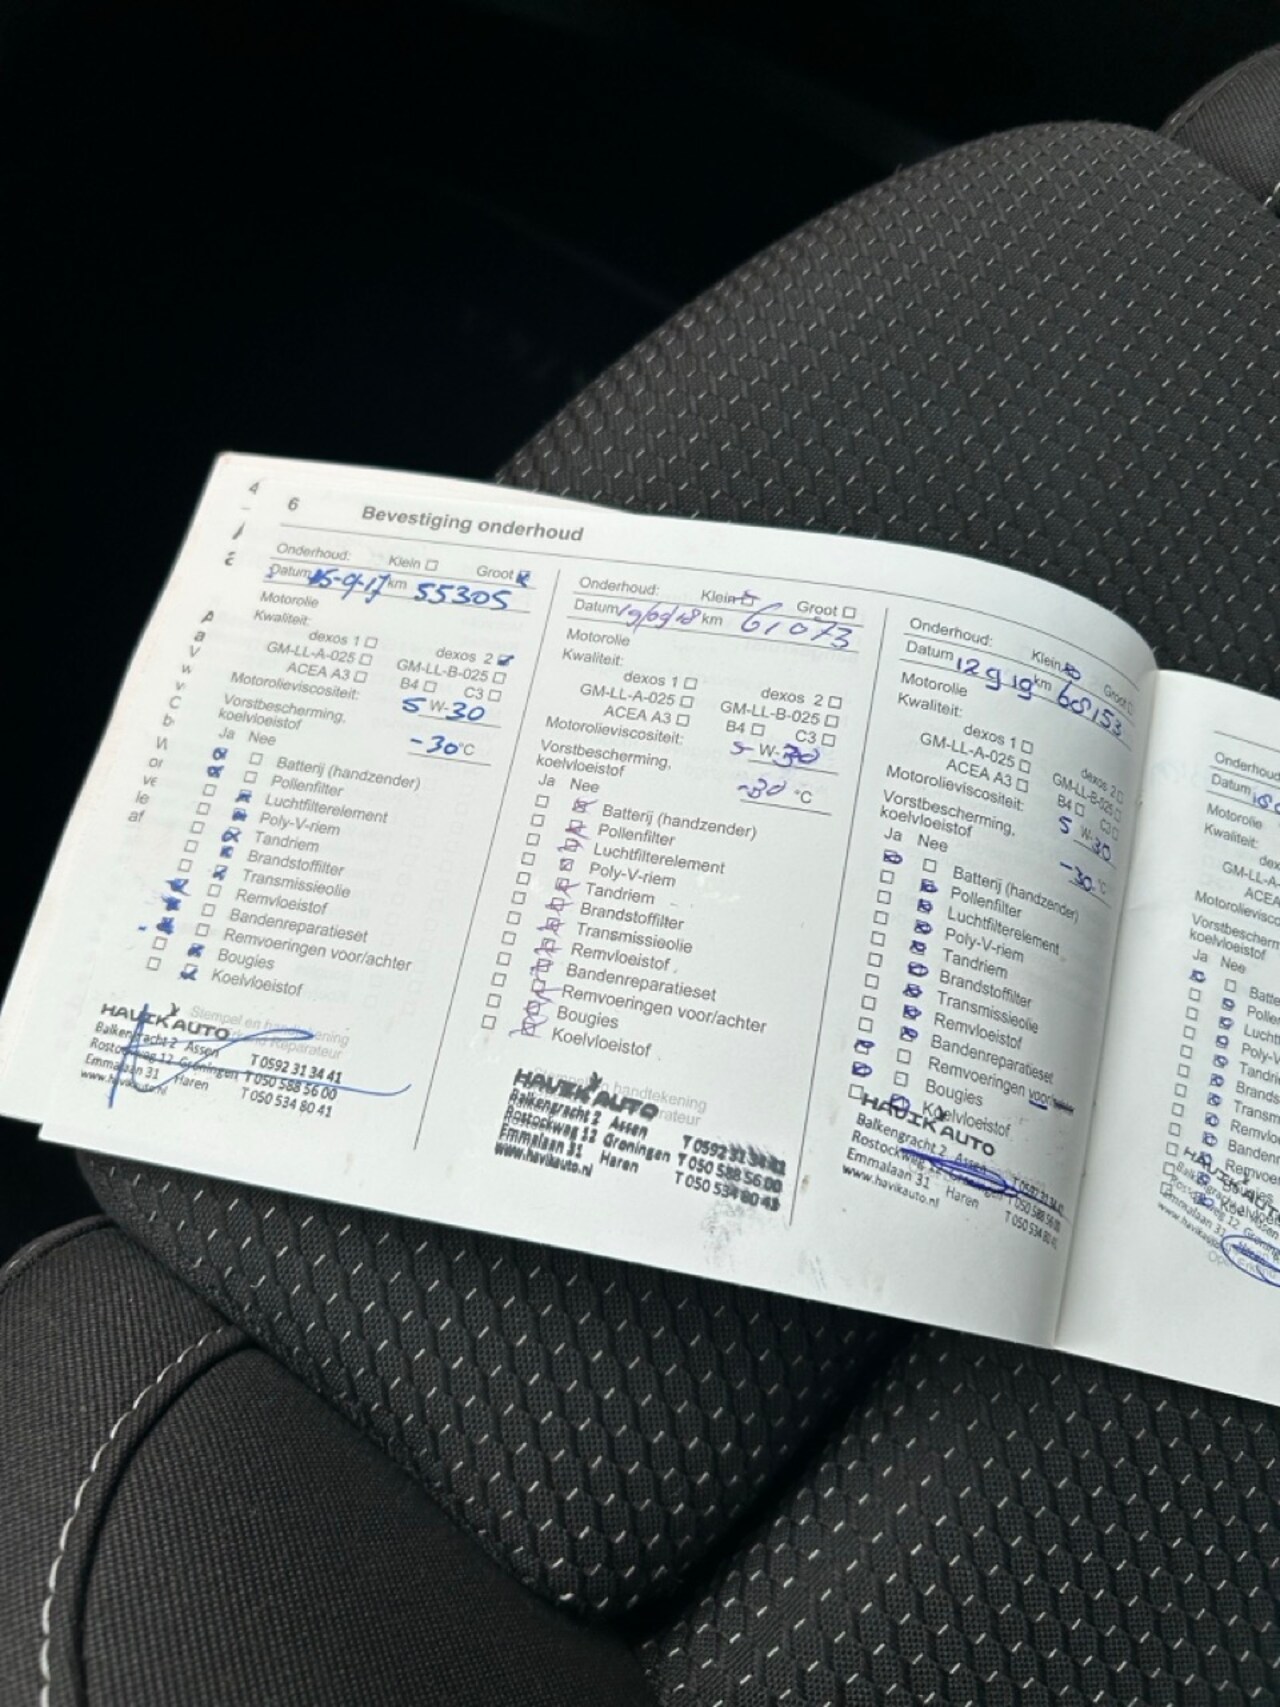 6 Bevestiging onderhoud
Onderhoud: Klein Groot
Datum 15-9-17 km 55305
Motorolie
Kwaliteit:
dexos 1 dexos 2
GM-LL-A-025 GM-LL-B-025
ACEA A3 B4 C3
Motorolieviscositeit: 5 W-30
Vorstbescherming,
koelvloeistof -30°C
Ja Nee
Batterij (handzender)
Pollenfilter
Luchtfilterelement
Poly-V-riem
Tandriem
Brandstoffilter
Transmissieolie
Remvloeistof
Bandenreparatieset
Remvoeringen voor/achter
Bougies
Koelvloeistof
Stempel en handtekening
HAVIK AUTO
Balkengracht 2 Assen T 0592 31 34 41
Rostockweg 12 Groningen T 050 588 56 00
Emmalaan 31 Haren T 050 534 80 41
www.havikauto.nl
Onderhoud: Klein Groot
Datum 19/09/18 km 61073
Motorolie
Kwaliteit:
dexos 1 dexos 2
GM-LL-A-025 GM-LL-B-025
ACEA A3 B4 C3
Motorolieviscositeit: 5 W-30
Vorstbescherming,
koelvloeistof -30 °C
Ja Nee
Batterij (handzender)
Pollenfilter
Luchtfilterelement
Poly-V-riem
Tandriem
Brandstoffilter
Transmissieolie
Remvloeistof
Bandenreparatieset
Remvoeringen voor/achter
Bougies
Koelvloeistof
HAVIK AUTO
Balkengracht 2 Assen T 0592 31 34 41
Rostockweg 12 Groningen T 050 588 56 00
Emmalaan 31 Haren T 050 534 80 41
www.havikauto.nl
Onderhoud: Klein Groot
Datum 12 9 19 km 68153
Motorolie
Kwaliteit:
dexos 1 dexos 2
GM-LL-A-025 GM-LL-B-025
ACEA A3 B4 C3
Motorolieviscositeit: 5 W-30
Vorstbescherming,
koelvloeistof -30 °C
Ja Nee
Batterij (handzender)
Pollenfilter
Luchtfilterelement
Poly-V-riem
Tandriem
Brandstoffilter
Transmissieolie
Remvloeistof
Bandenreparatieset
Remvoeringen voor
Bougies
Koelvloeistof
HAVIK AUTO
Balkengracht 2 Assen T 0592 31 34 41
Rostockweg 12 Groningen T 050 588 56 00
Emmalaan 31 Haren T 050 534 80 41
www.havikauto.nl
Datum
Motorolie
Kwaliteit:
Vorstbescherm
koelvloeistof
Ja Nee